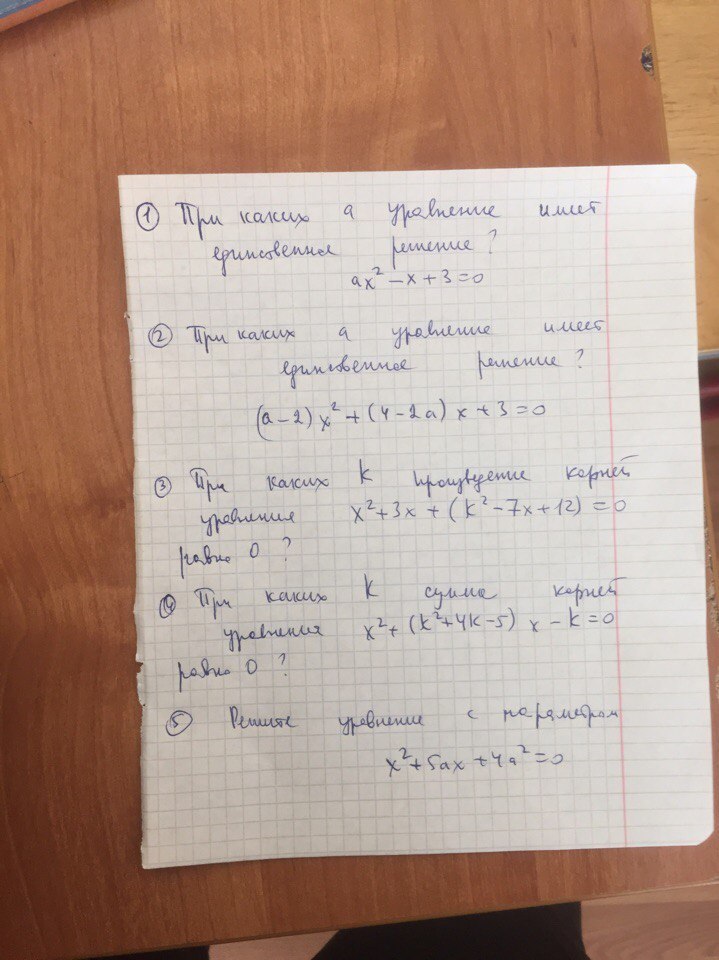 ① При каких а уравнение имеет
единственное решение?
ax² - x + 3 = 0
② При каких а уравнение имеет
единственное решение?
(a-2)x² + (4-2a)x + 3 = 0
③ При каких k произведение корней
уравнения x² + 3x + (k² - 7x + 12) = 0
равно 0?
④ При каких k сумма корней
уравнения x² + (k² + 4k - 5) x - k = 0
равно 0?
⑤ Решите уравнение с параметром
x² + 5ax + 4a² = 0